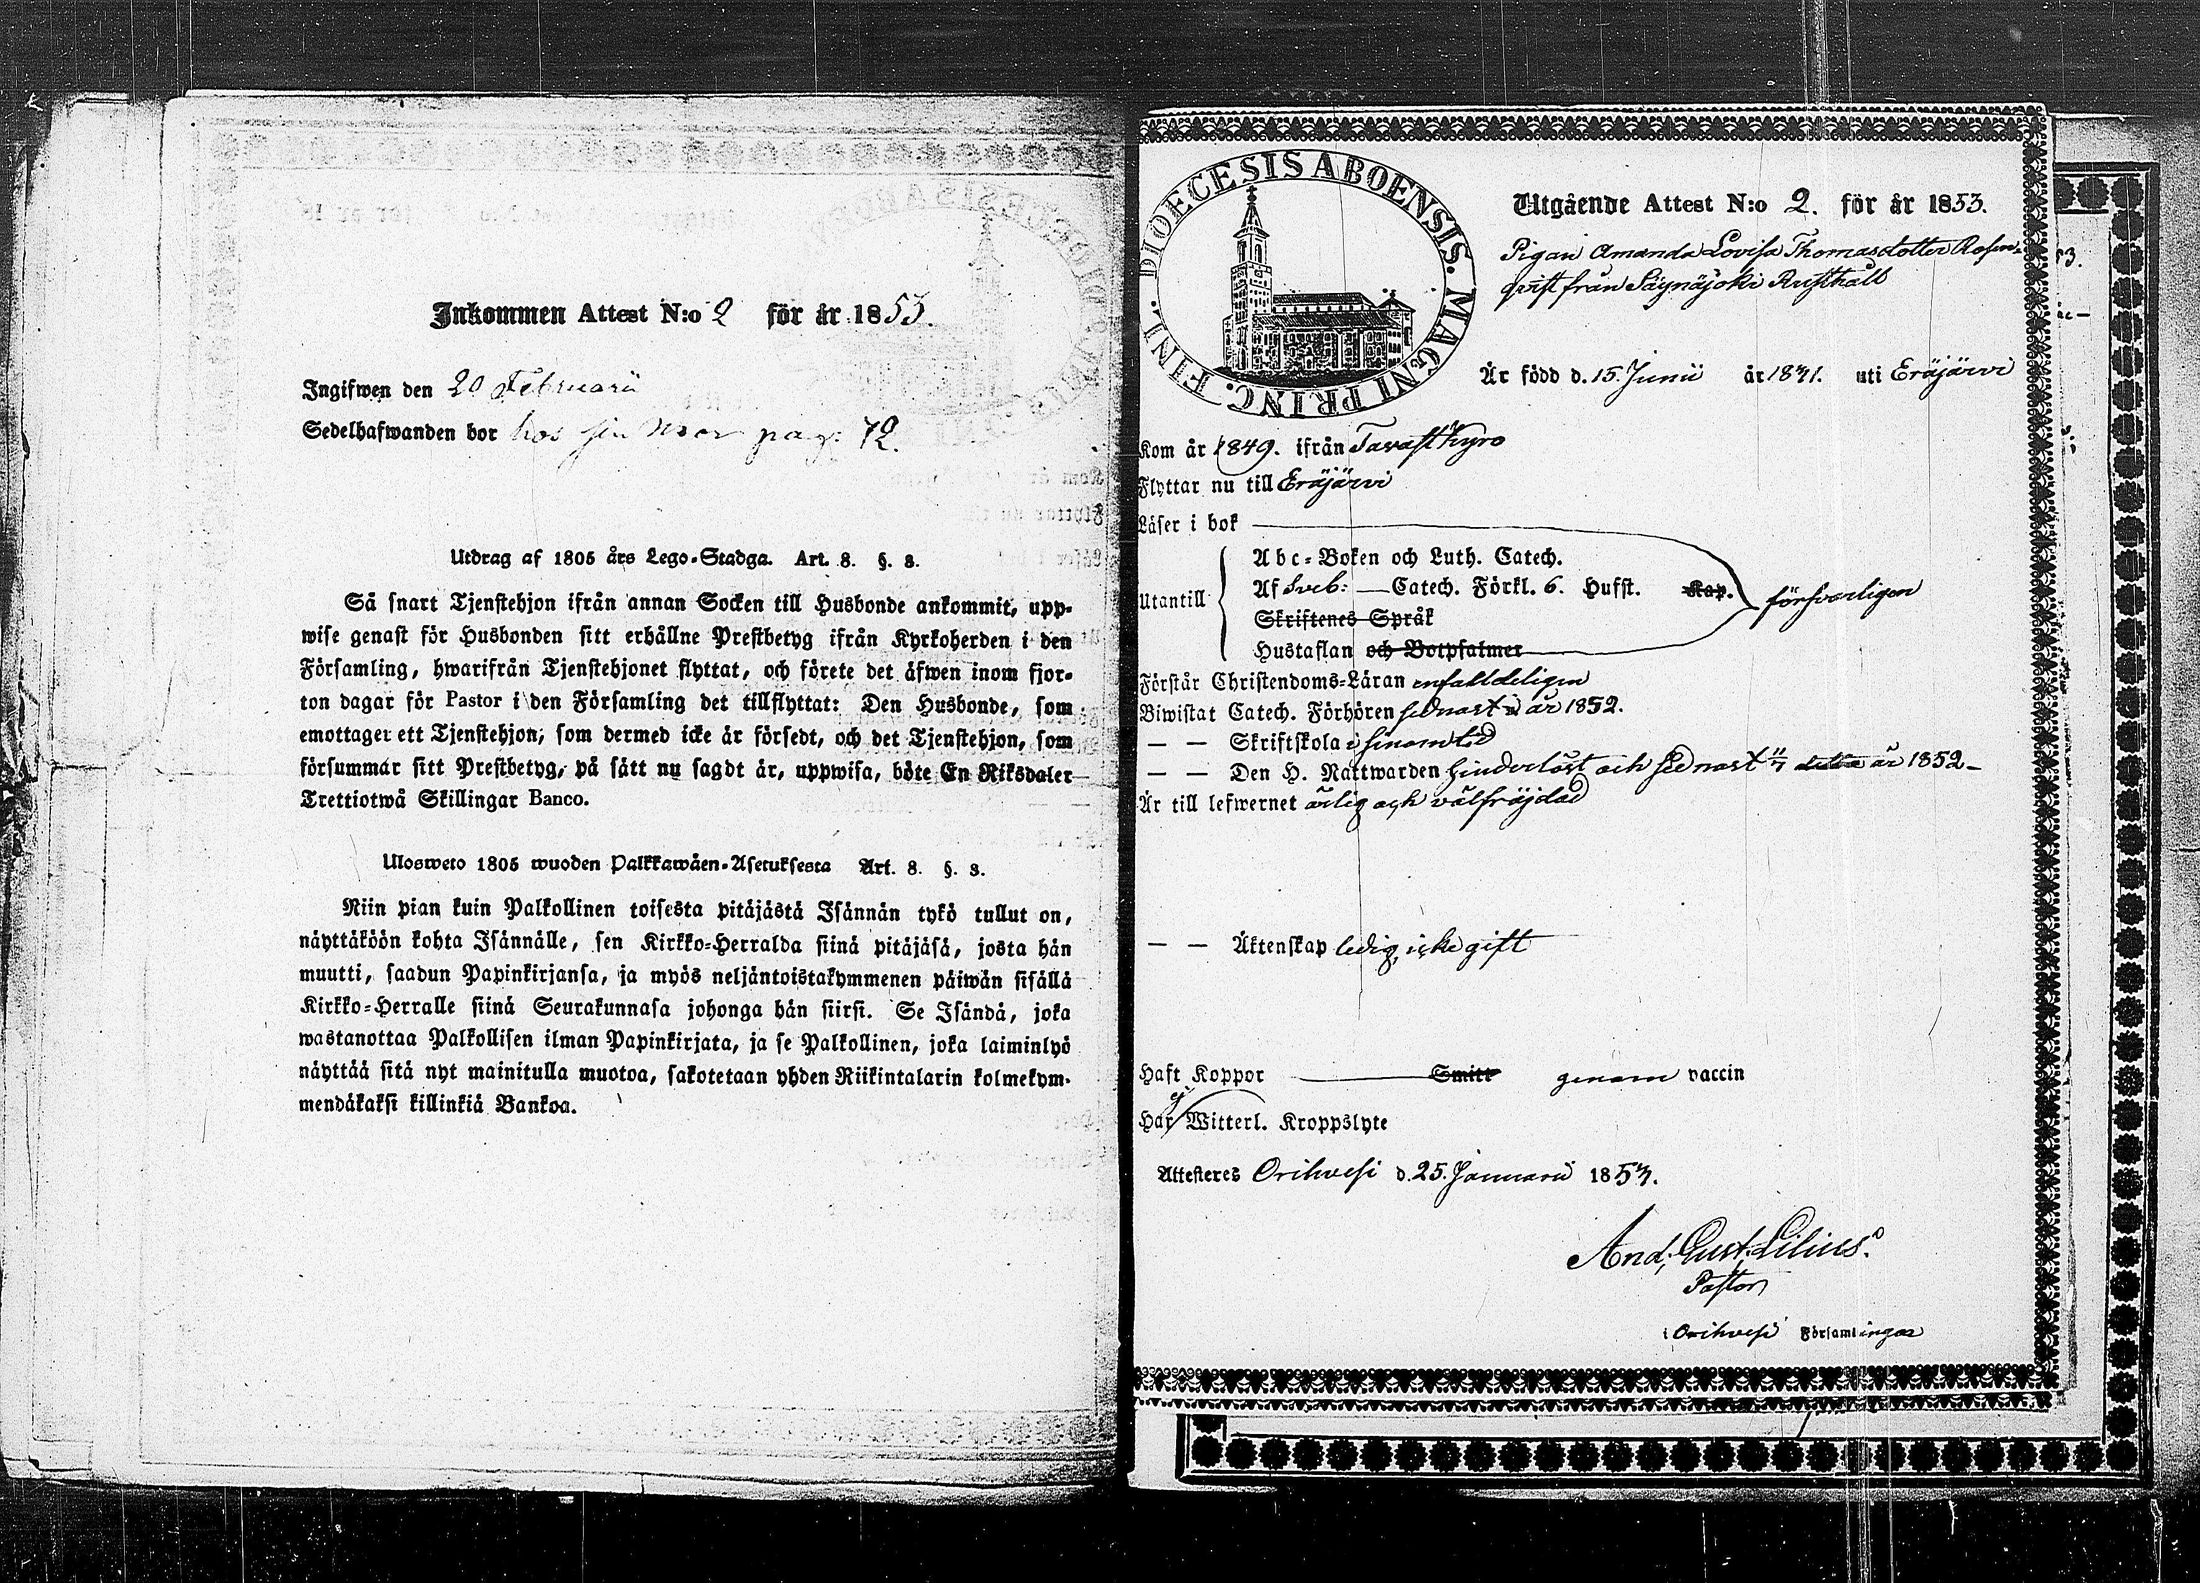 Inkommen Attest N:o 2 för år 1853.
Ingifwen den 20 Februarii
Sedelhafwanden bor hos sin Mor pag: 72.
Utdrag af 1805 års Lego-Stadga. Art. 8. §. 3.
Så snart Tjenstehjon ifrån annan Socken till Husbonde ankommit, upp-
wise genast för Husbonden sitt erhållne Prestbetyg ifrån Kyrkoherden i den
Församling, hwarifrån Tjenstehjonet flyttat, och förete det äfwen inom fjor-
ton dagar för Pastor i den Församling det tillflyttat: Den Husbonde, som
emottager ett Tjenstehjon, som dermed icke är försedt, och det Tjenstehjon, som
försummar sitt Prestbetyg, på sätt nu sagdt är, uppwisa, böte En Riksdaler
Trettiotwå Skillingar Banco.
Ulosweto 1805 wuoden Palkkawäen-Asetuksesta Art. 8. §. 3.
Niin pian kuin Palkollinen toisesta pitäjästä Isännän tykö tullut on,
näyttäköön kohta Isännälle, sen Kirkko-Herralda siinä pitäjäsä, josta hän
muutti, saadun Papinkirjansa, ja myös neljäntoistakymmenen päiwän sisällä
Kirkko-Herralle siinä Seurakunnasa johonga hän siirsi. Se Isändä, joka
wastanottaa Palkollisen ilman Papinkirjata, ja se Palkollinen, joka laiminlyö
näyttää sitä nyt mainitulla muotoa, sakotetaan yhden Riikintalarin kolmekym-
mendäkaksi killinkiä Bankoa.
DIOECESIS ABOENSIS. MAGNI PRINC. FINL.
Utgående Attest N:o 2. för år 1853.
Pigan Amanda Lovisa Thomasdotter Rosen-
qvist från Säynäjoki Rusthåll
Är född d. 15. Junii år 1831. uti Eräjärvi
Kom år 1849. ifrån Tavastkyro
Flyttar nu till Eräjärvi
Läser i bok
Utantill
Abc-Boken och Luth. Catech.
Af Sveb: Catech. Förkl. 6. Hufst. Kap.
försvarligen
Skriftenes Språk
Hustaflan och Botpsalmer
Förstår Christendoms-Läran enfaldeligen
Biwistat Catech. Förhören sednast år 1852.
— — Skriftskola i sinom tid
— — Den H. Nattwarden hinderlöst och sednast år 1852
Är till lefwernet ärlig och välfräjdad
— — Äktenskap ledig, icke gift
Haft Koppor Smitt genom vaccin
Har ej Witterl. Kroppslyte
Attesteres Orihvesi d. 25. Januarii 1853.
And. Gust. Lilius.
Pastor
i Orihvesi Församlingar